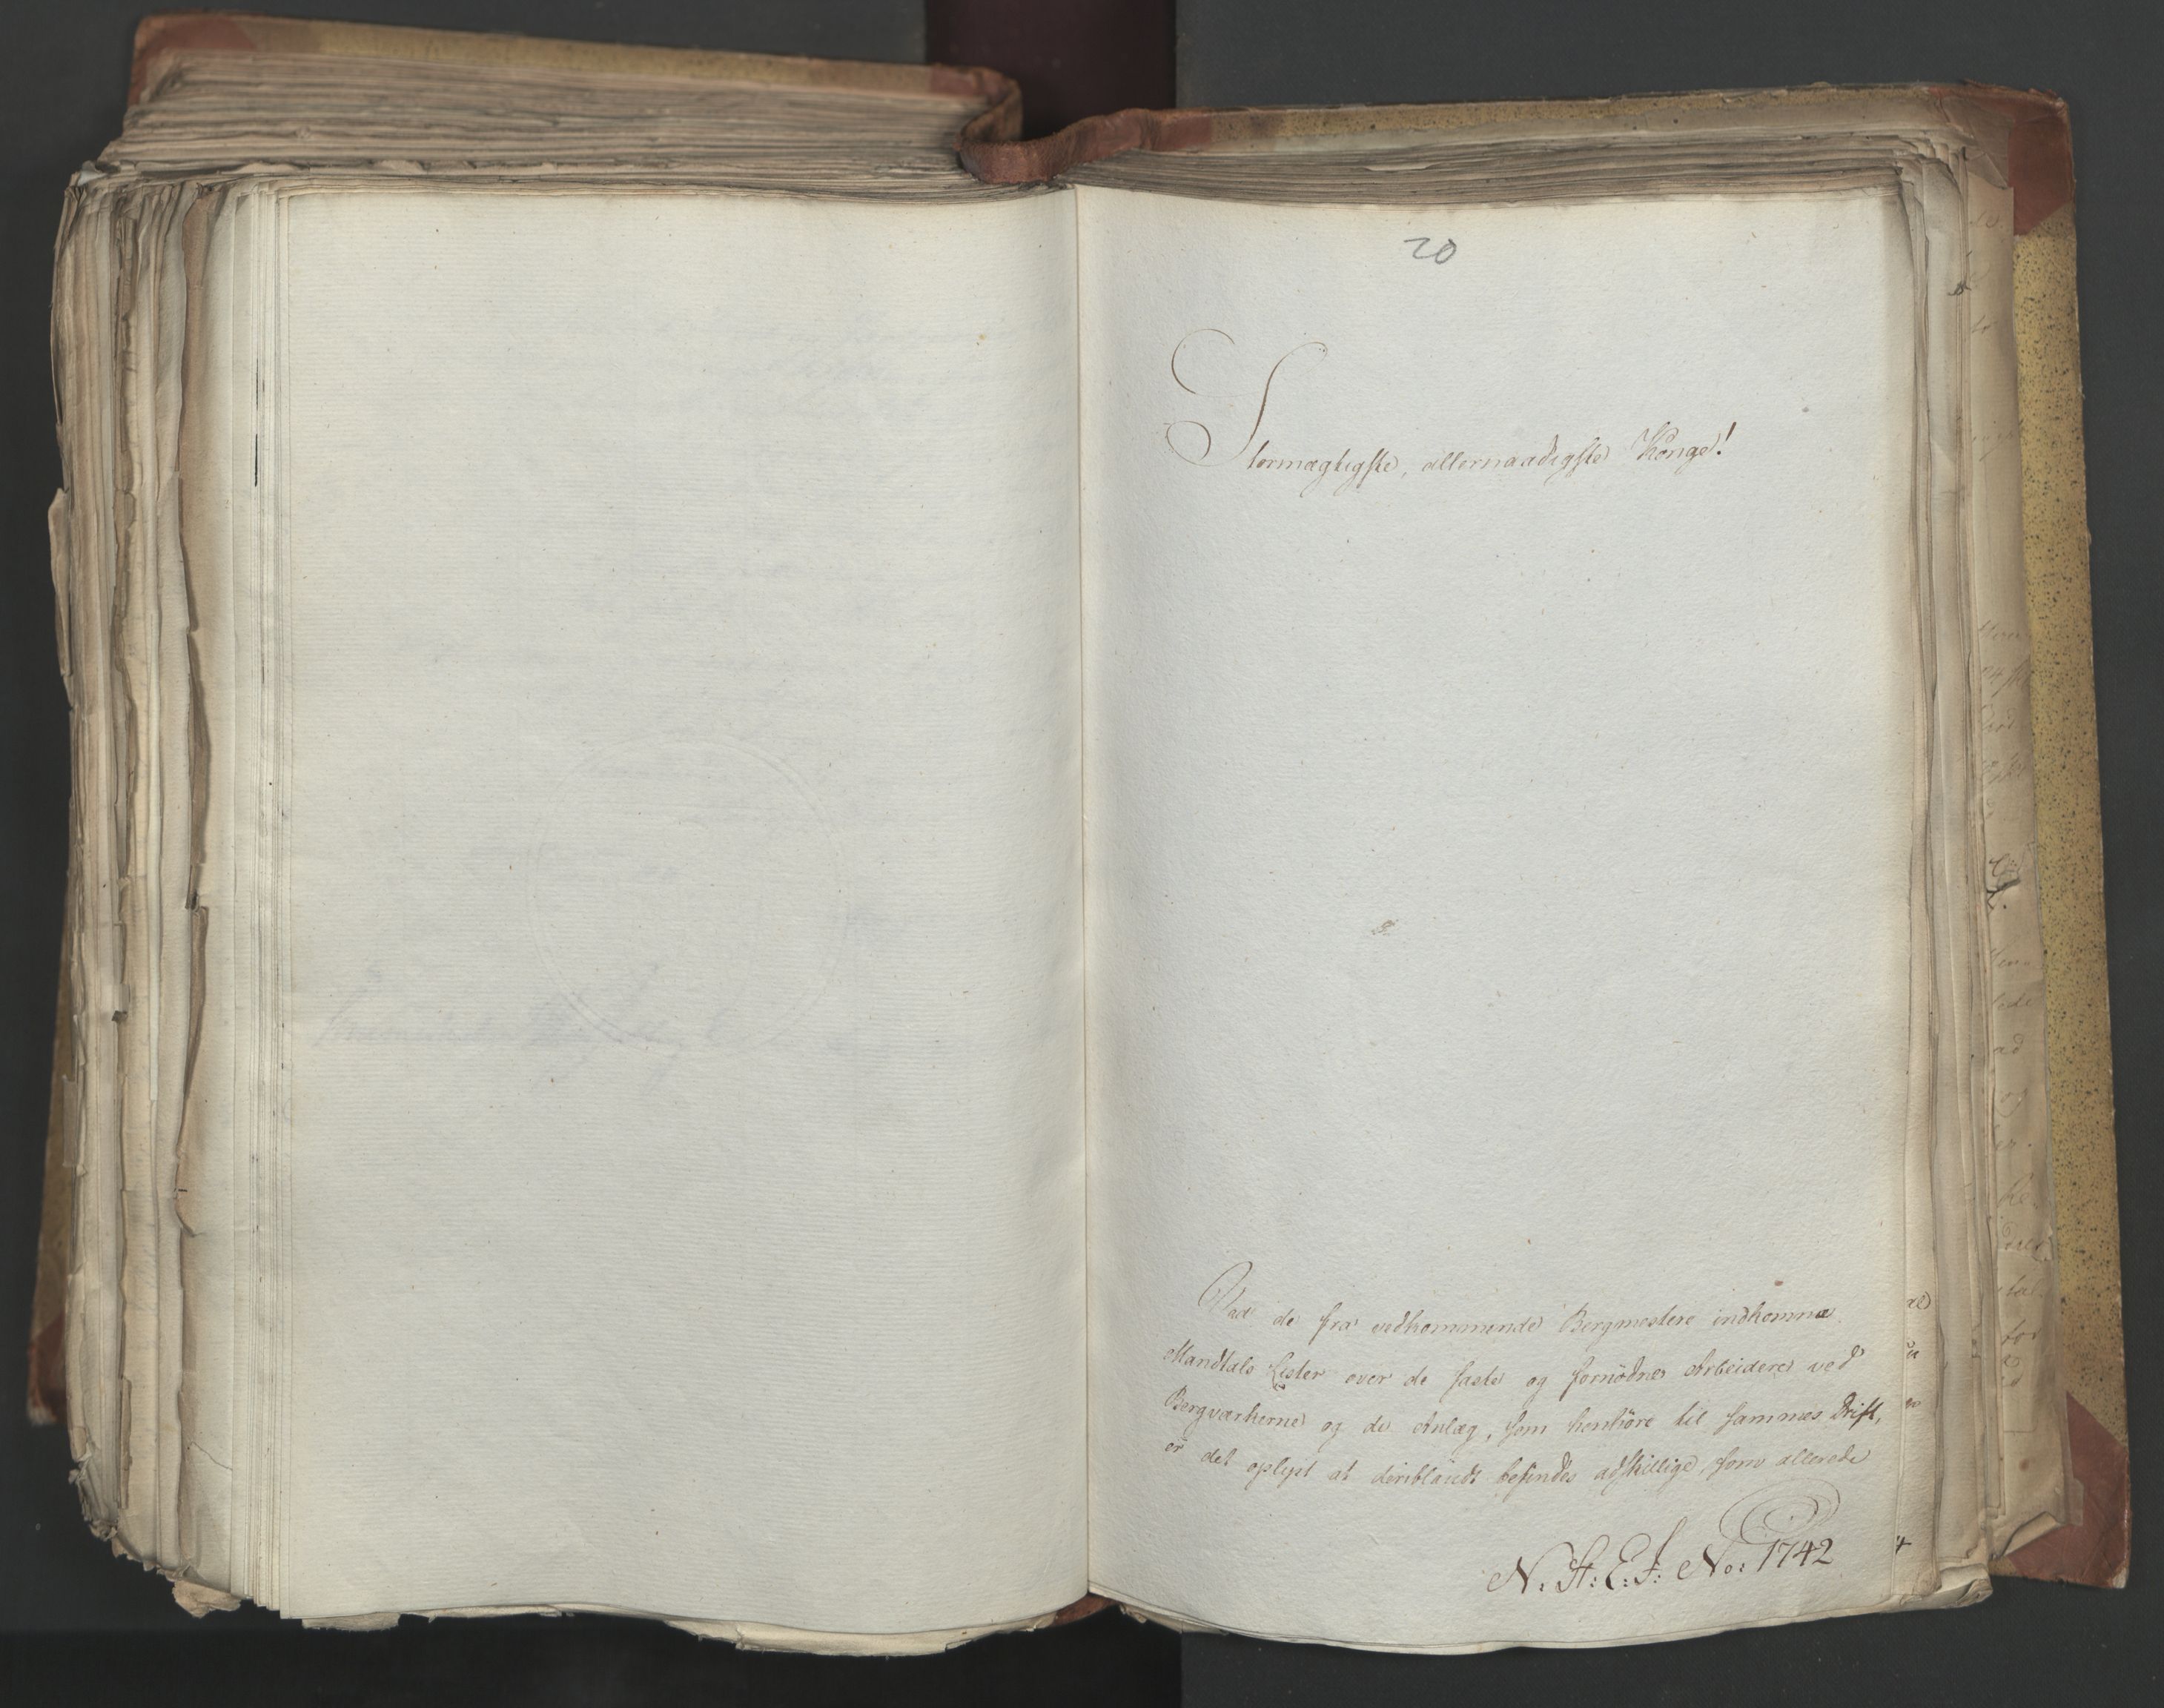 20
Stormægtigste, allernaadigste Konge!
Ved de fra vedkommende Bergmestere indkomne
Mandtals Lister over de faste og fornødne Arbeidere ved
Bergværkerne og de Anlæg, som henhøre til sammes Drift,
er det oplyst at deriblandt befindes adskillige som allerede
N: St: E: J: No: 1742